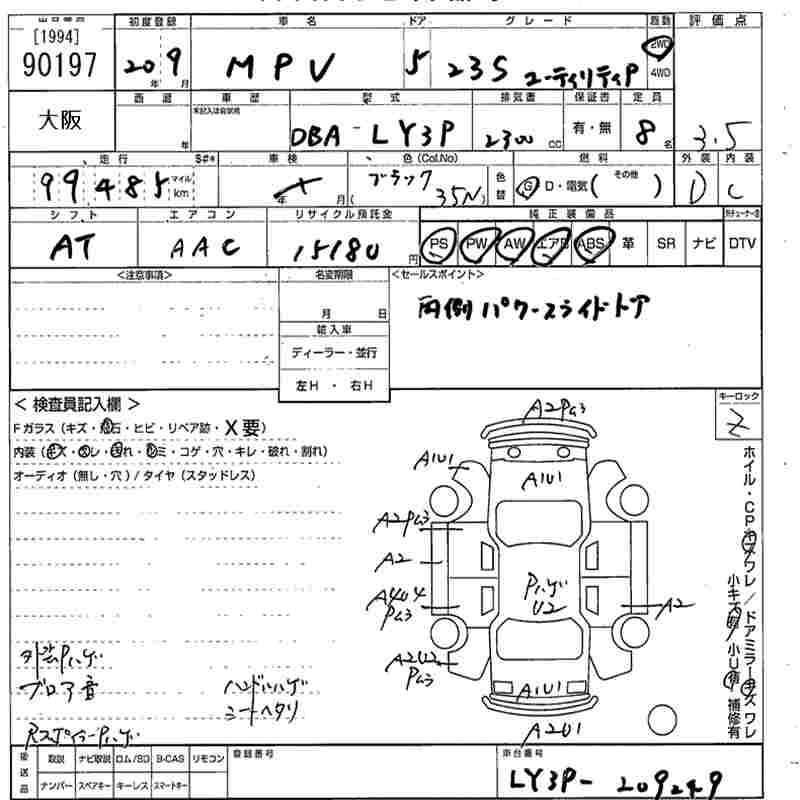 [1994]
90197
初度登録
車名
ドア
グレード
駆動
評価点
20 9
年 月
MPV
5
23S ユーティリティP
2WD
4WD
大阪
西暦
車歴
型式
排気量
保証書
定員
未記入は自家用
年
DBA-LY3P
2300 CC
有・無
8名
3.5
走行
S#*
車検
色(Col.No)
燃料
外装
内装
99485
マイル
km
年 月
ブラック
(35N)
色替
G D・電気(その他)
D
C
シフト
エアコン
リサイクル預託金
純正装備品
AT
AAC
15180円
PS PW AW エアB ABS 革 SR ナビ DTV
<注意事項>
名変期限
<セールスポイント>
月 日
両側パワースライドドア
輸入車
ディーラー・並行
左H・右H
<検査員記入欄>
キーロック
Fガラス(キズ・飛石・ヒビ・リペア跡・X要)
Z
内装(キズ・スレ・汚れ・シミ・コゲ・穴・キレ・破れ・割れ)
オーディオ(無し・穴)/タイヤ(スタッドレス)
ホイル・CPキズワレ/ドアミラーキズワレ
補修有
A2Pム3
A1U1
A1U1
A2Pム3
A2
A4U4
Pム3
Pハゲ
U2
A2
A2U2
Pム3
A1U1
A2U1
外装Pハゲ
ブロア音
ハンドルハゲ
シートヘタリ
RスポイラーPハゲ
後送品
取説 ナビ取説 ロム/SD B-CAS リモコン
ナンバー スペアキー キーレス スマートキー
登録番号
車台番号
LY3P-209249